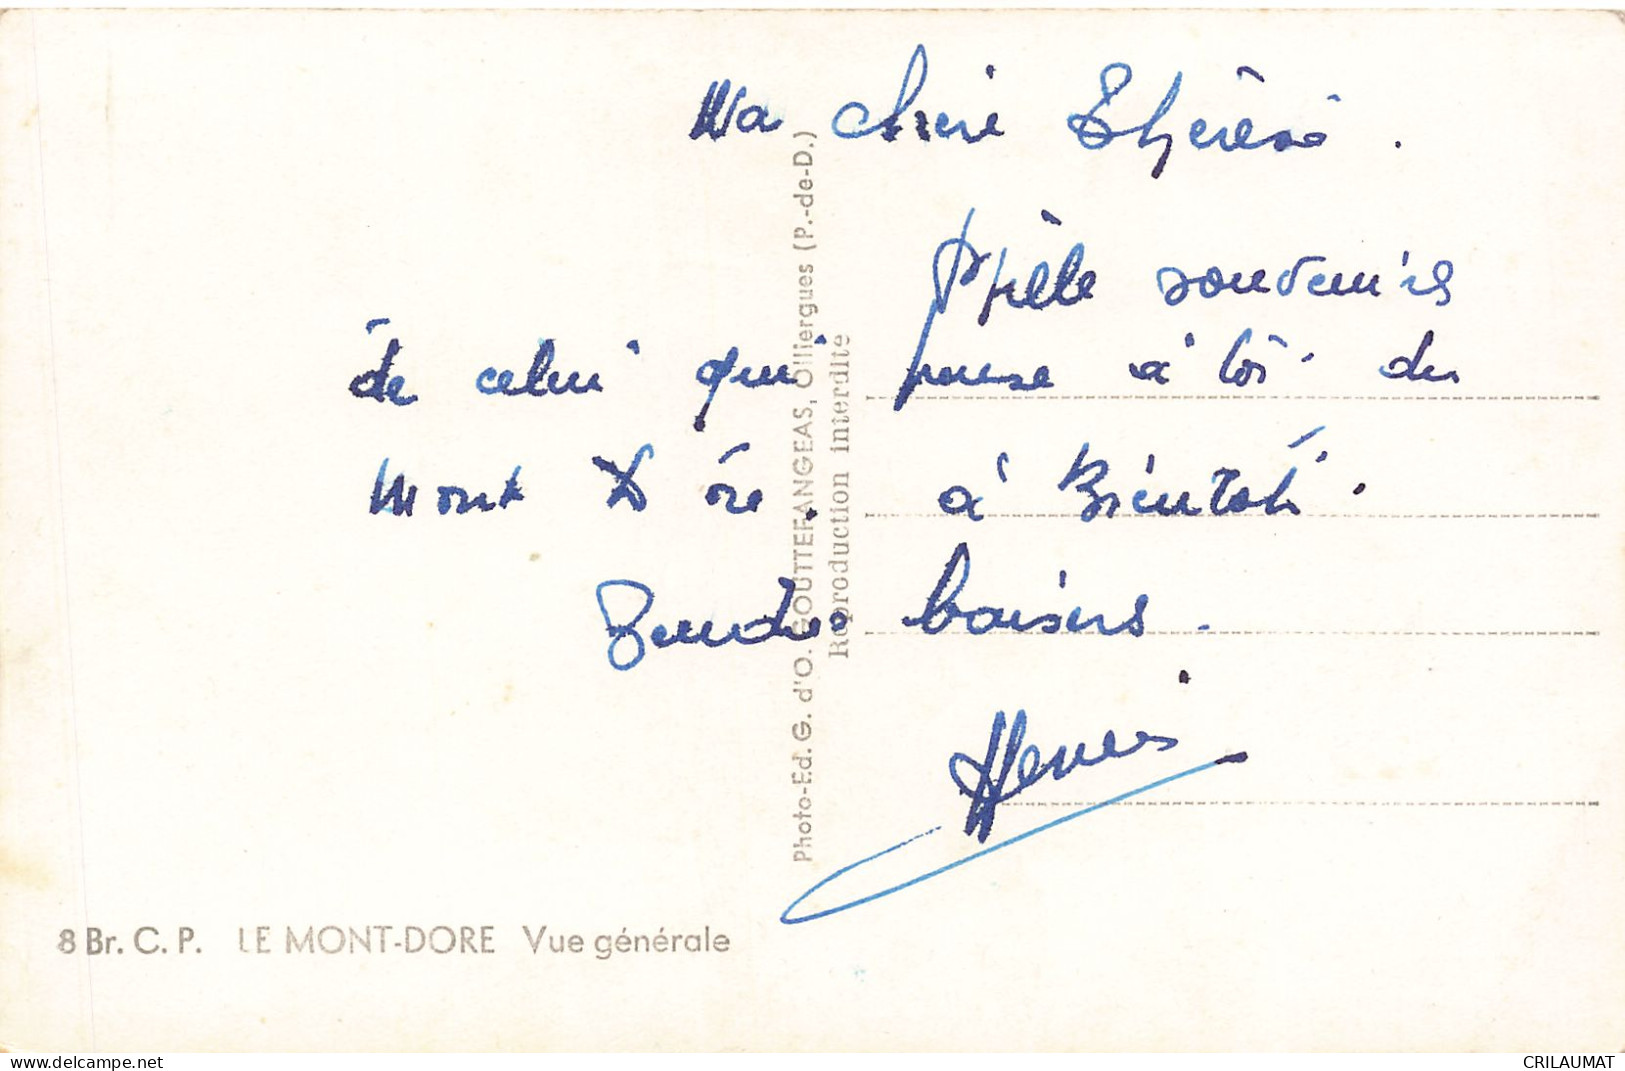 Ma chere Thérèse.
Fidèle souvenirs
de celui qui pense à toi du
Mont D ore. à Bientot.
Tendres baisers.
Henri
Photo-Ed. G. d'O. GOUTTEFANGEAS, Olliergues (P.-de-D.)
Reproduction interdite
8 Br. C. P. LE MONT-DORE Vue générale
www.delcampe.net
CRILAUMAT